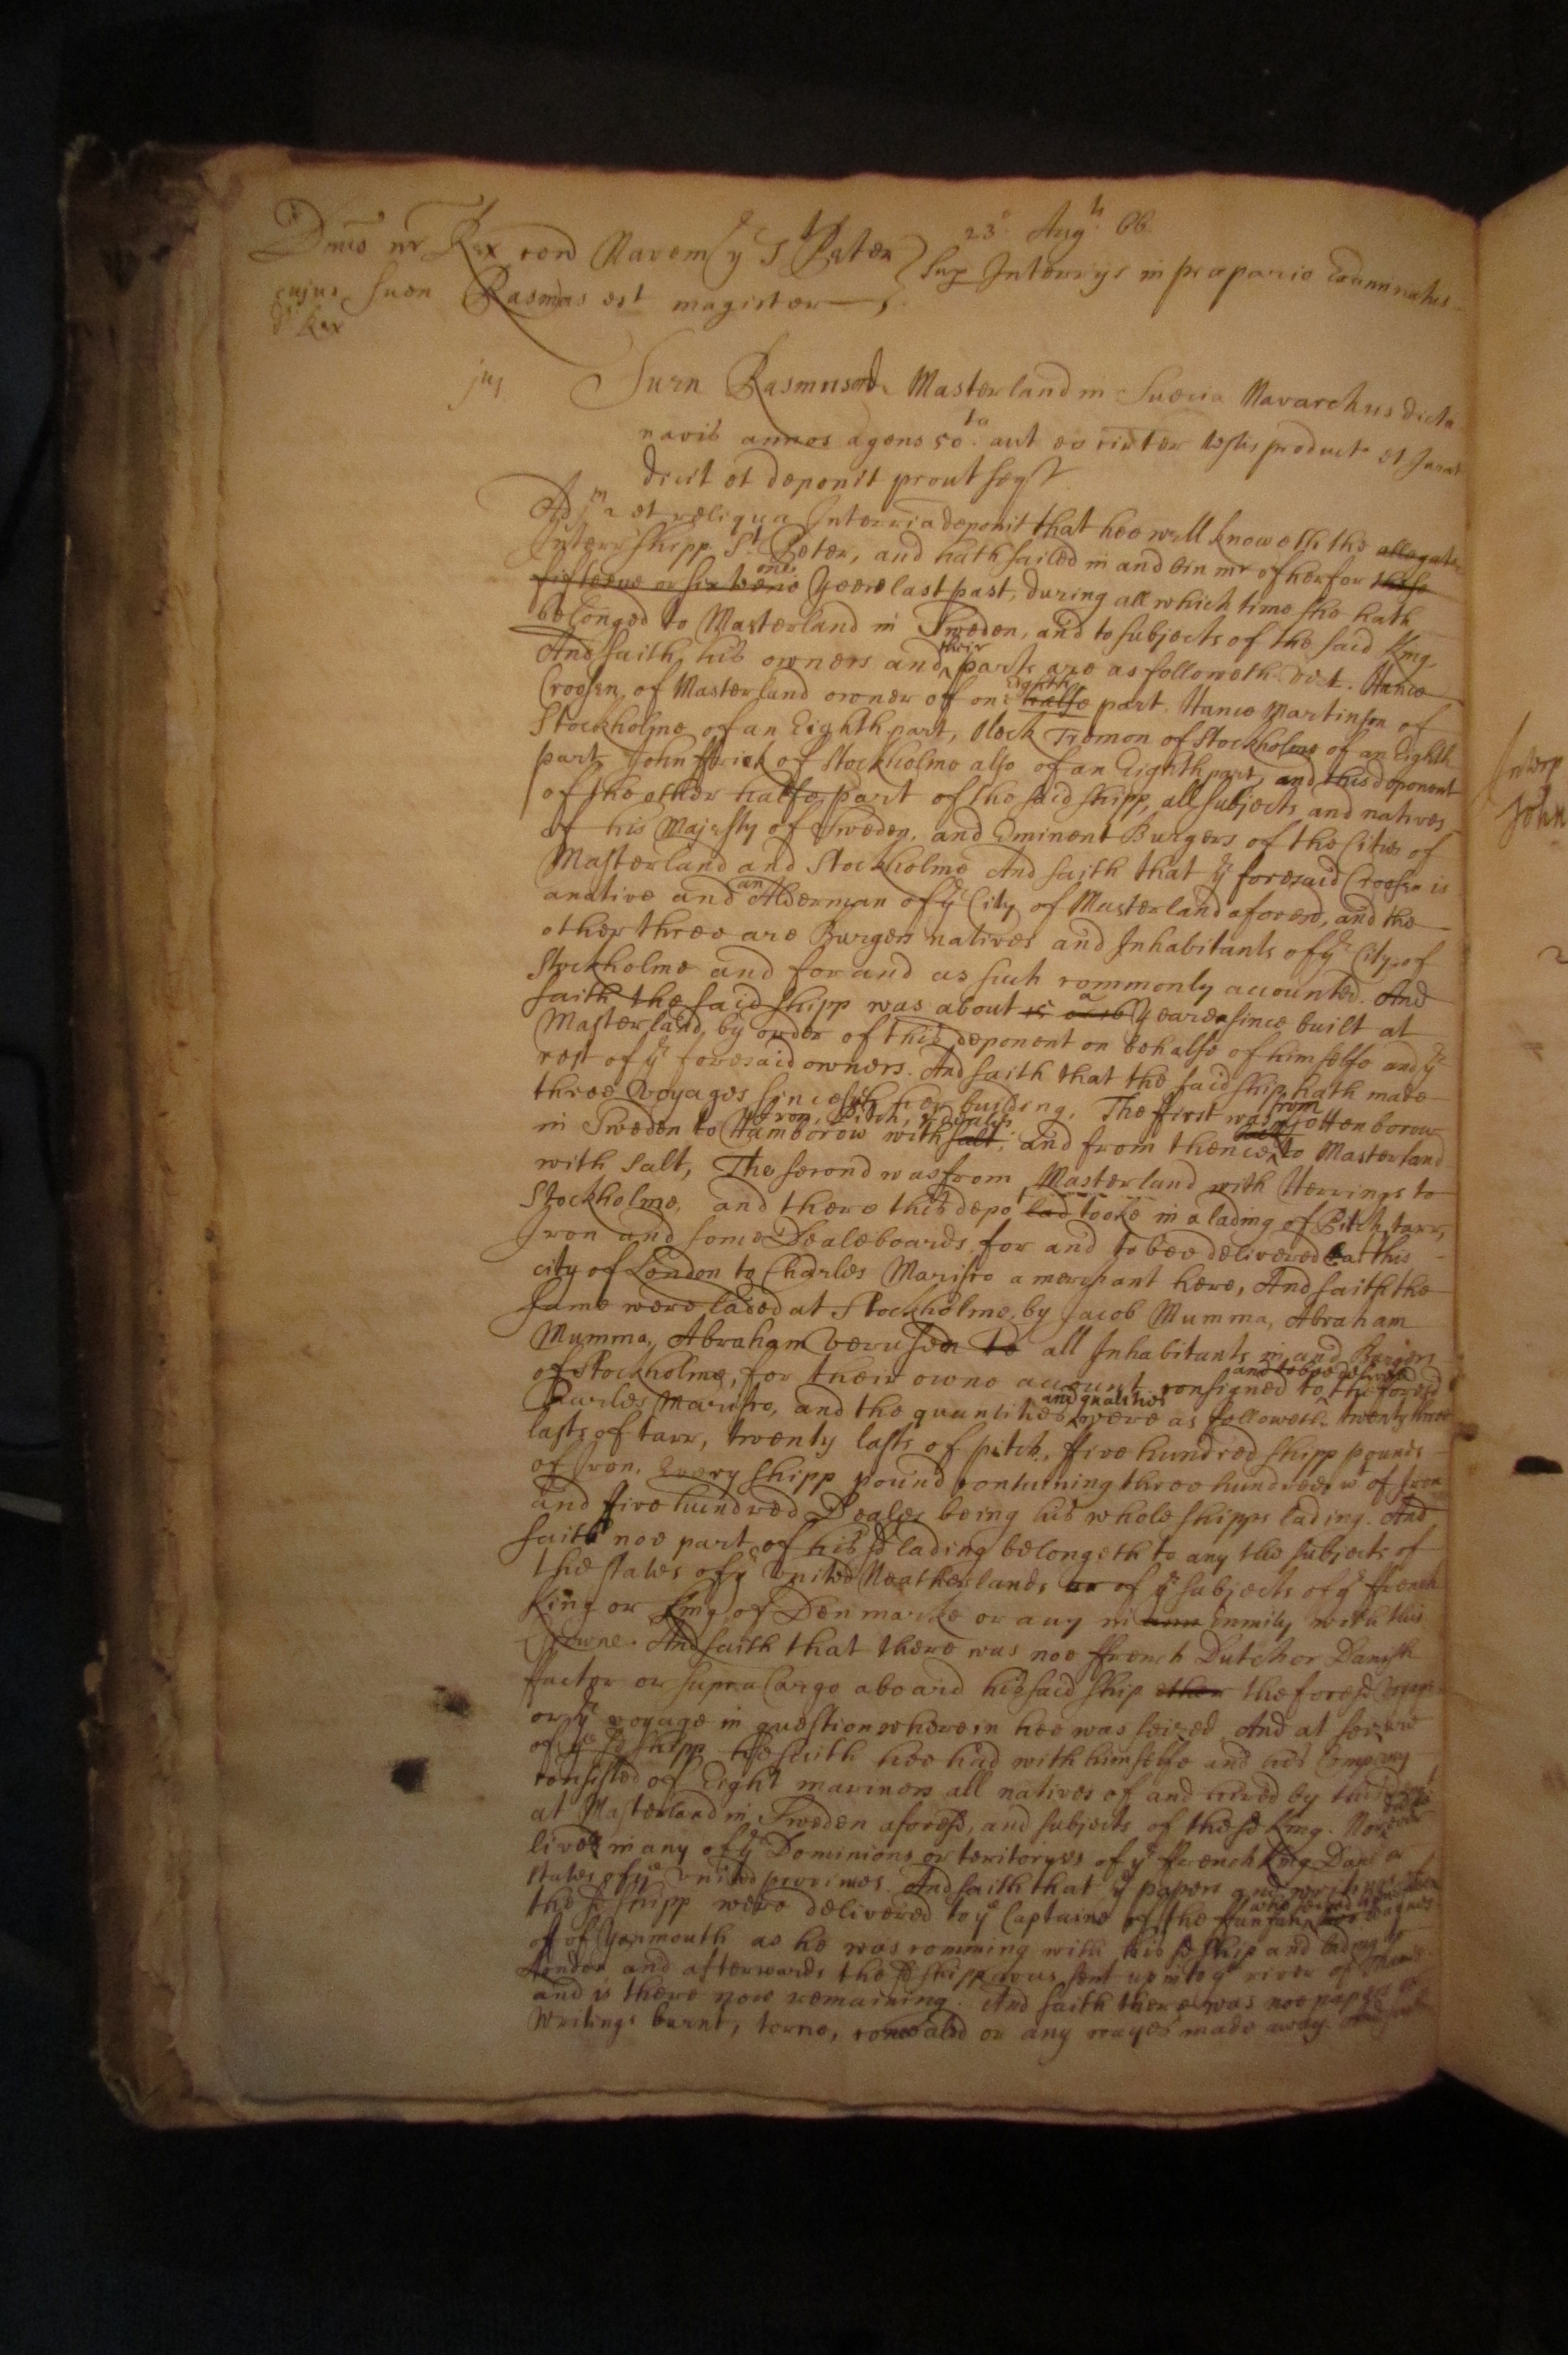 23° Augti 66.
Dmus nr Rex con Navem ye St Peter
Sup Interrijs in præpario examinatus
cujus Suen Rasmas est magister
Dr Rex
jus
Suen Rasmuson de Masterland in Suecia Navarchus dicta
navis annos agens 50ta aut eo circiter testis product et Jurat
dicit et deponit prout seqr.
Ad jm et reliqua Interria deponit that hee well knoweth the allegate
Interr shipp St Peter, and hath sailed in and bin mr of her for these
fifteene or sixteene one Yeere last past, during all which time she hath
belonged to Masterland in Sweden, and to subjects of the said King,
And saith his owners and their parts are as followeth vizt. Hance
Croosen, of Masterland owner of one halfe Eighth part, Hance Martinson of
Stockholme of an Eighth part, Olock Tromon of Stockholme of an Eighth
part, John ffrick of Stockholme also of an Eighth part, and this deponent
of the other halfe part of the said shipp, all subjects and natives
of his Majesty of Sweden, and Eminent Burgers of the Cities of
Masterland and Stockholme And saith that ye foresaid Croosen is
a native and an Alderman of ye City of Masterland aforesd, and the
other three are Burgers natives and Inhabitants of ye City of
Stockholme and for and as such commonly accounted. And
saith the said shipp was about 15 or 16 a Yeare since built at
Masterland, by order of this deponent on behalfe of himselfe and ye
rest of ye foresaid owners. And saith that the said ship hath made
three voyages since her building, The first was from Gottenborow
in Sweden to Hamborow with salt Iron, Pitch, & deales, and from thence to Masterland
with salt, The second was from Masterland with Herrings to
Stockholme, and there this depot lad tooke in a lading of Pitch, tarr,
Iron and some Dealeboards, for and to bee delivered at this
city of London to Charles Marisco a merchant here, And saith the
same were laded at Stockholme, by Jacob Mumma, Abraham
Mumma, Abraham all Inhabitants in and Burgers
of Stockholme, for their owne account consigned and to bee delivered to the foresd
Charles Marisco, and the quantities and qualities were as followeth twenty three
lasts of tarr, twenty lasts of pitch, ffive hundred shipp pounds
of Iron, Every shipp pound containing three hundred wt of Iron
and ffive hundred Deales being his whole shipps lading. And
saith noe part of his sd lading belongeth to any the subjects of
the States of ye United Neatherlands or of ye subjects of ye ffrench
King or King of Denmarke or any in Enmity with this
Crowne. And saith that there was noe ffrench Dutch or Danish
ffactor or supra Cargo aboard his said ship the foresd
or ye voyage in question wherein hee was seized And at seizure
of ye sd shipp hee saith hee had with himselfe and his Company
consisted of Eight mariners all natives of and hired by this dept
at Masterland in Sweden aforesd, and subjects of the sd King. Nor ever
lived in any of ye Dominions or teritoryes of ye ffrench King Dane or
States of ye united provinces And saith that ye papers and writings of
the sd shipp were delivered to ye Captaine of the ffanfan who seized
of of Yarmouth as he was comming with his sd ship and lading
London and afterwards the sd shipp was sent up into ye river of Thames
and is there now remaining. And saith there was noe papers or
Writings burnt, torne, concealed or any wayes made away.
Interp
John